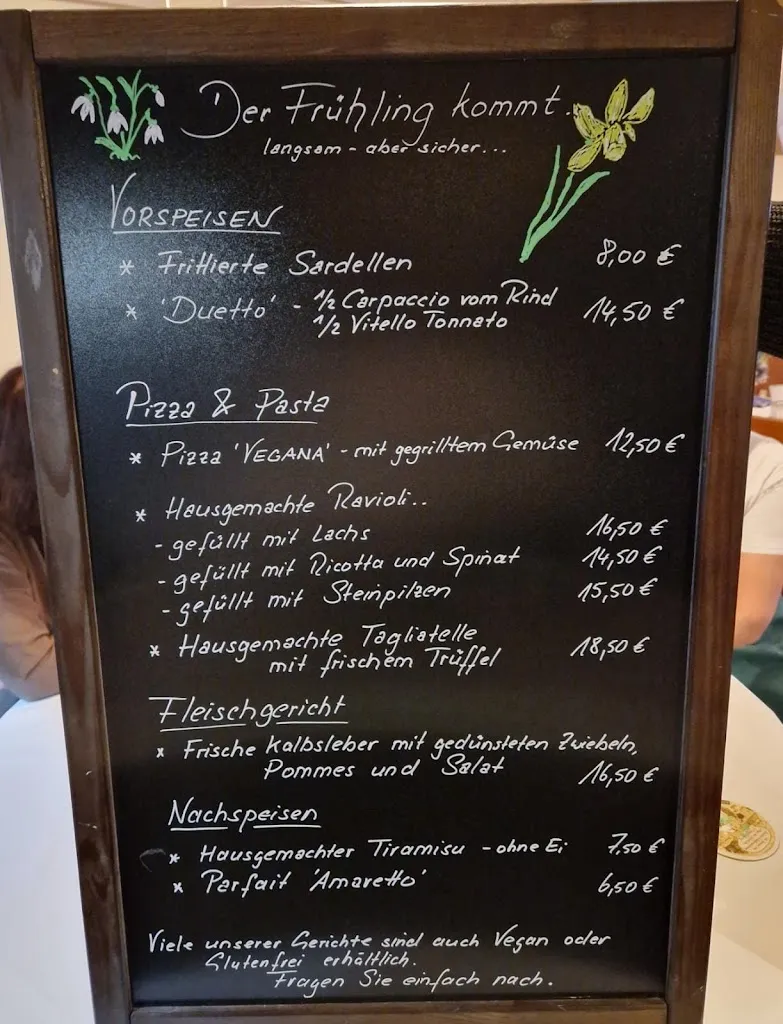 Der Frühling kommt.
langsam - aber sicher...
VORSPEISEN
* Frittierte Sardellen 8,00 €
* 'Duetto' - 1/2 Carpaccio vom Rind
1/2 Vitello Tonnato 14,50 €
Pizza & Pasta
* Pizza 'VEGANA' - mit gegrilltem Gemüse 12,50 €
* Hausgemachte Ravioli..
- gefüllt mit Lachs 16,50 €
- gefüllt mit Ricotta und Spinat 14,50 €
- gefüllt mit Steinpilzen 15,50 €
* Hausgemachte Tagliatelle
mit frischem Trüffel 18,50 €
Fleischgericht
* Frische Kalbsleber mit gedünsteten Zwiebeln,
Pommes und Salat 16,50 €
Nachspeisen
* Hausgemachter Tiramisu - ohne Ei 7,50 €
* Parfait 'Amaretto' 6,50 €
Viele unserer Gerichte sind auch Vegan oder
Glutenfrei erhältlich.
Fragen Sie einfach nach.